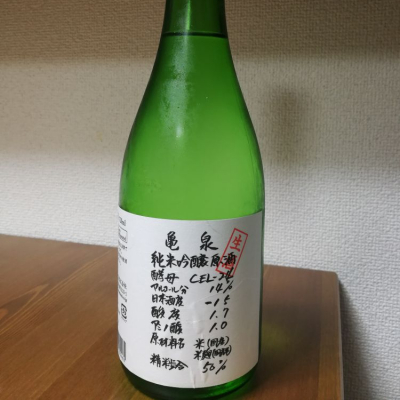 亀泉
生
純米吟醸原酒
酵母 CEL-24
アルコール分 14%
日本酒度 -15
酸度 1.7
アミノ酸 1.0
原材料名 米(国産)
米麹(国産米)
精米歩合 50%